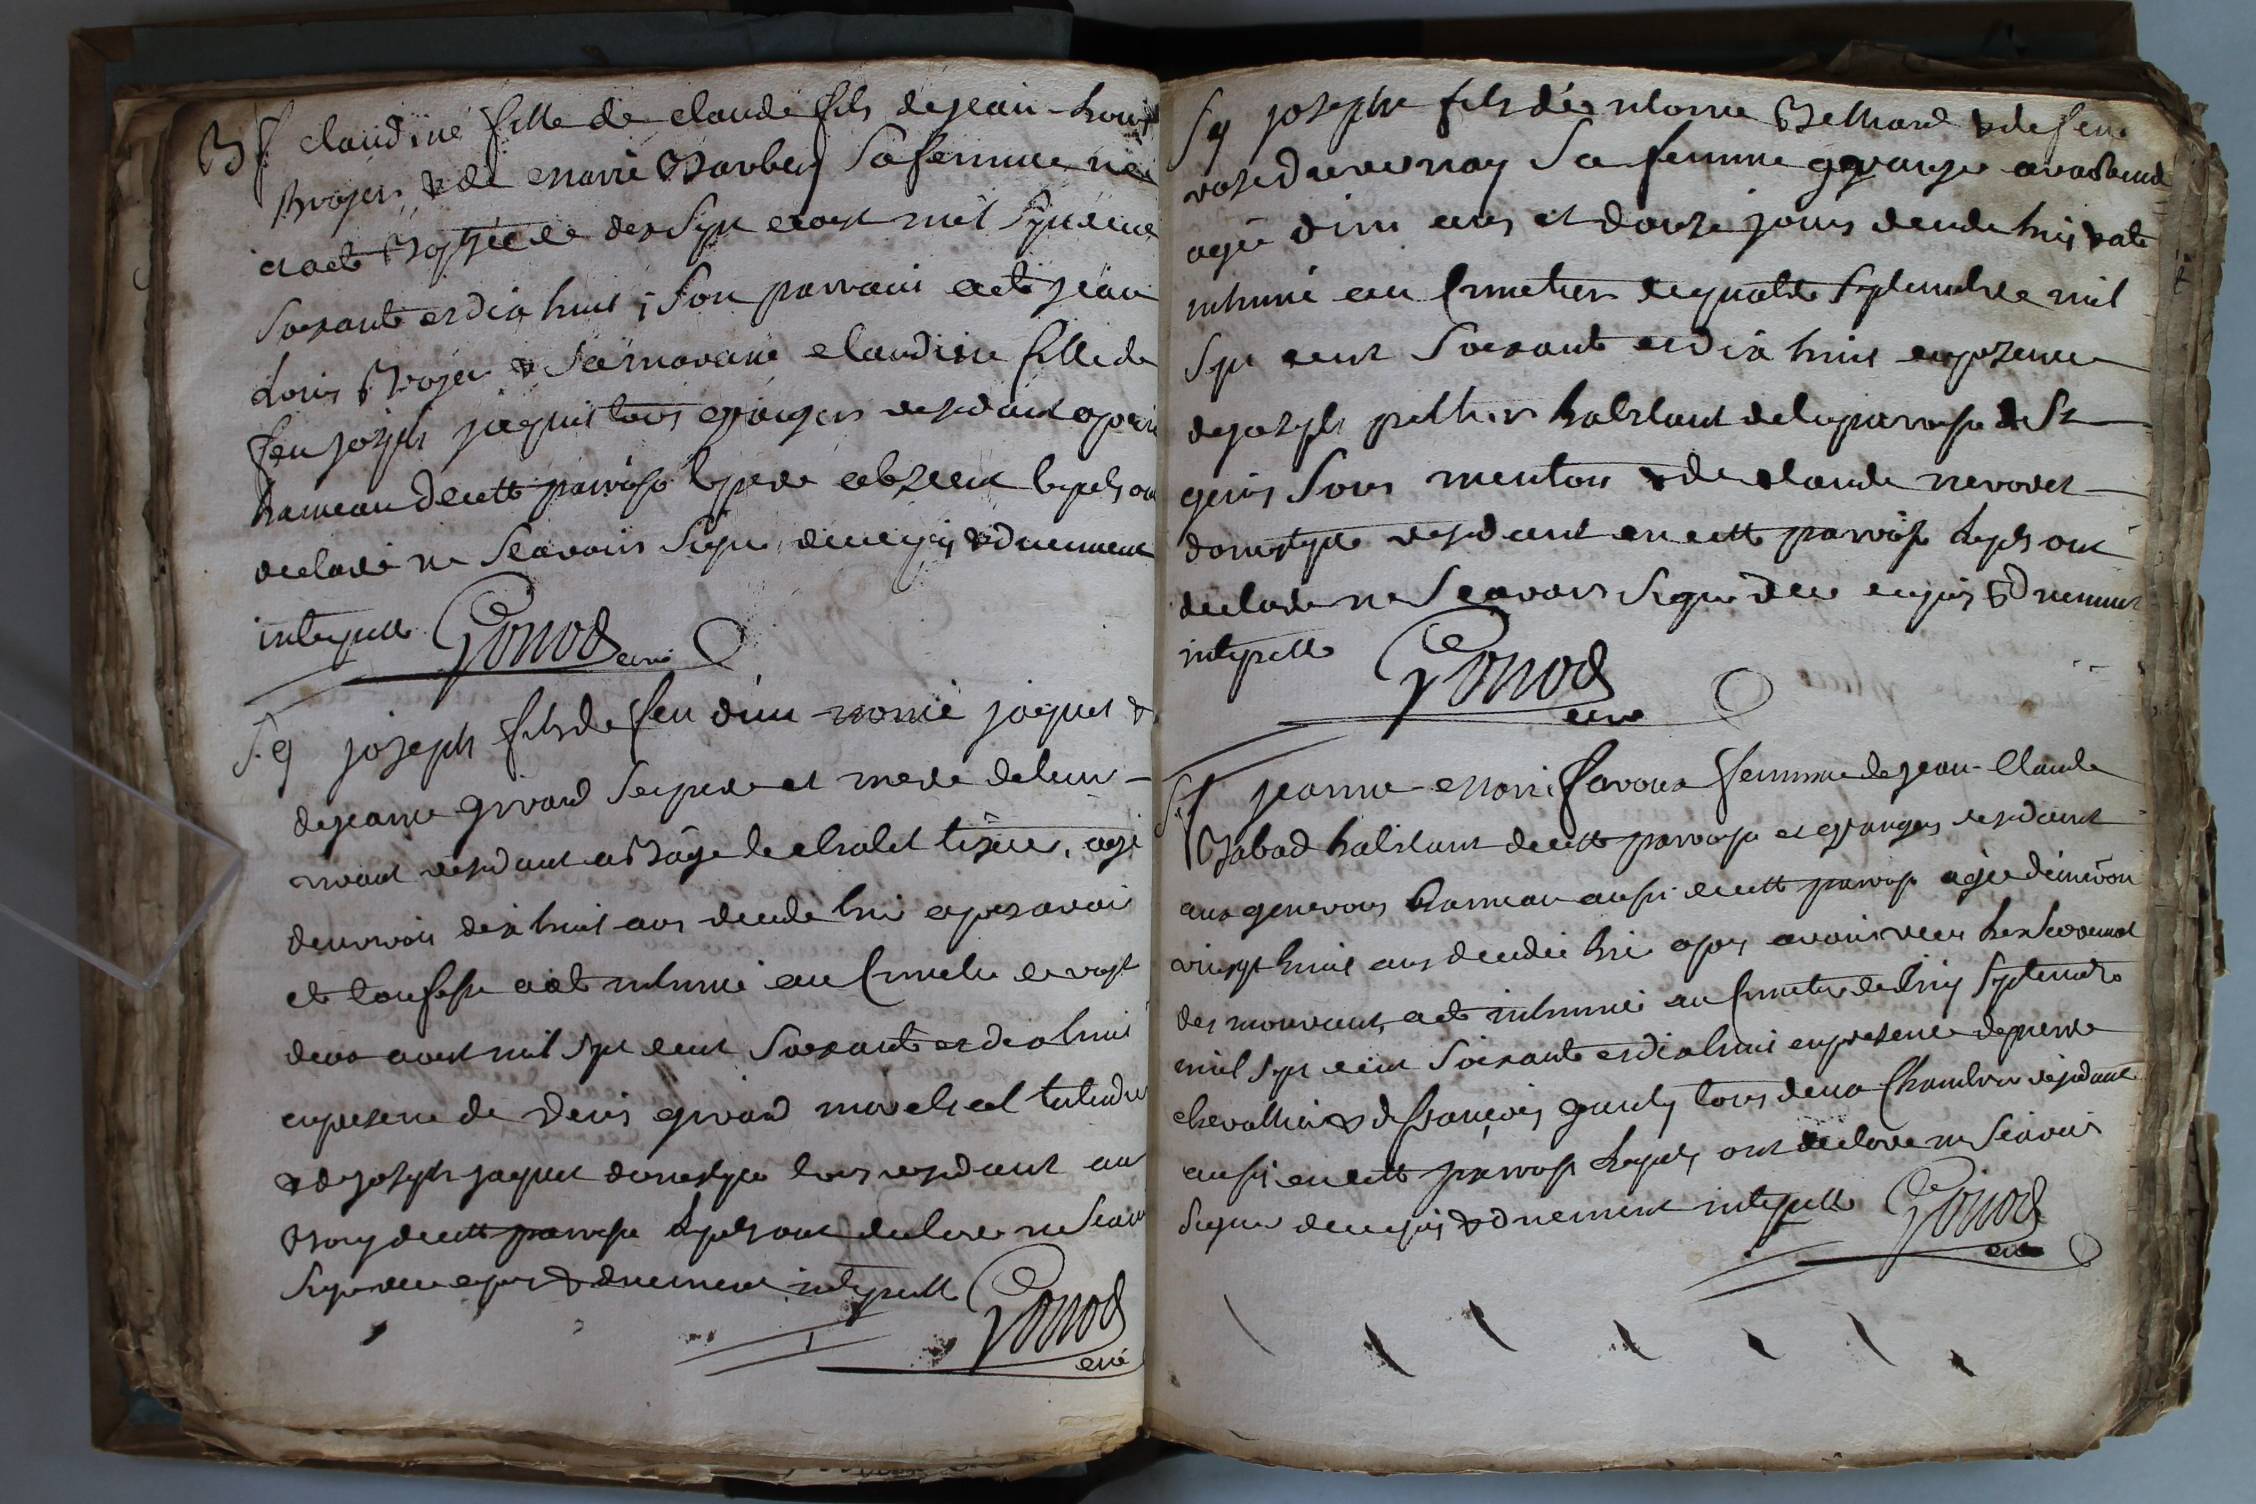 Bf claudine fille de claude fils de jean-louis
Broyer & de marie Barbery sa femme née
et a eté Baptisée le dix sept aout mil sept cent
soixante et dix huit ; son parrain a eté jean
Louis Broyer & sa maraine claudine fille de
feu joseph jaquis tous grangers residant a
hameau de cette paroisse le pere absent lequels ont
declaré ne scavoir signe de ce enquis & duement
interpellé Gonod curé
S.g joseph fils de feu dun nomé jaquet &
de jeanne girard ses pere et mere de leur
vivant residant a Bâge le chatel tixier, agé
denviron dix huit ans decedé hier apres avoir
eté confessé a eté inhumé au cimetier le vingt
deux aout mil sept cent soixante et dix huit
en presence de denis girard marechal taillandier
& de joseph jaquet domestique tous residant au
Bourg de cette paroisse lequels ont declaré ne scavoir
signe de ce enquis & duement interpellé Gonod
curé
Sg joseph fils de Belliard & de feue
rose duvernay sa femme granger
agée dun ans et douze jours decede hier & a eté
inhumé au cimetier le quatre septembre mil
sept cent soixante et dix huit en presence
de joseph pelletier habitant de la paroisse de St
genis sous menton & de claude nevoret
domestique residant en cette paroisse lequels ont
declaré ne scavoir signe de ce enquis & duement
interpellé Gonod
curé
Sf jeanne-marie favoux femme de jean-Claude
Babad habitant de cette paroisse et grangers residant
aux genevous hameau aussi de cette paroisse agée denviron
vingt huit ans decedée hier apres avoir recu les sacremens
des mourants, a eté inhumée au cimetier le cinq septembre
mil sept cent soixante et dix huit en presence de pierre
chevallier & de françois tous deux residant
aussi en cette paroisse lequels ont declaré ne scavoir
signer de ce enquis & duement interpellé Gonod
curé